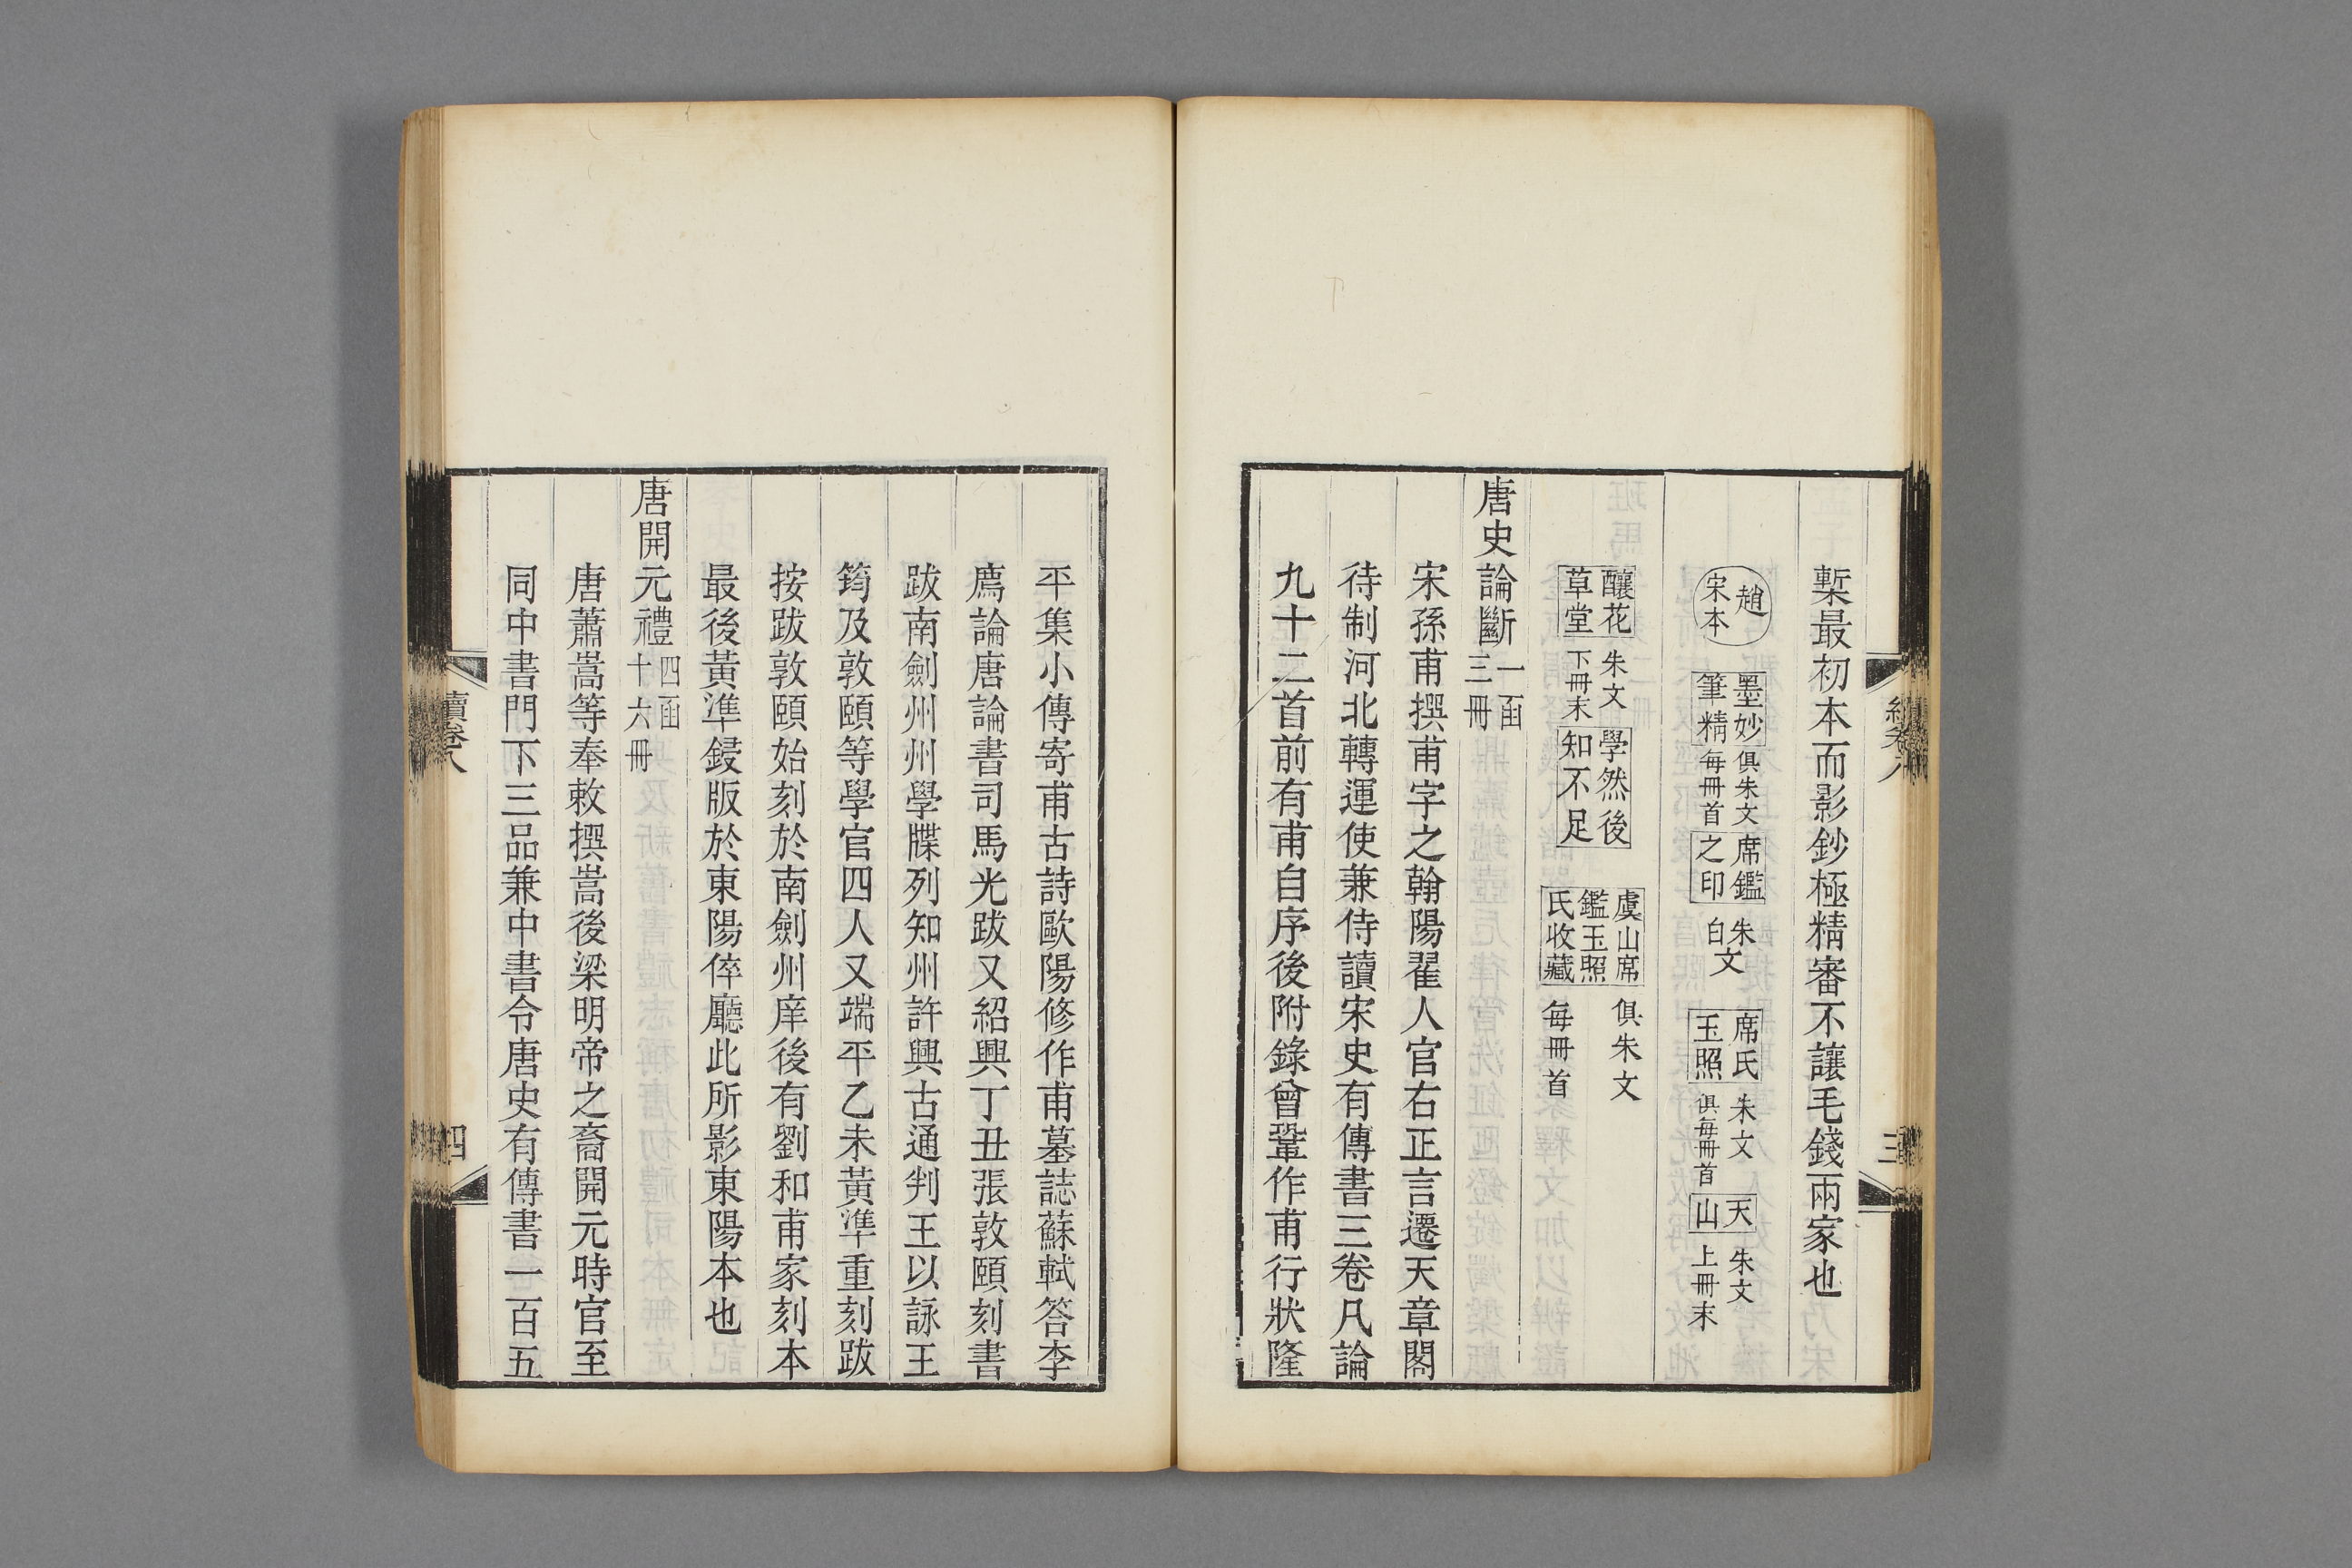 槧最初本而影鈔極精審不讓毛錢兩家也
趙宋本 墨妙筆精 俱朱文每冊首 席鑑之印 朱白文 席氏玉照 朱文俱每冊首 天山 朱文上冊末
釀花草堂 朱文下冊末 學然後知不足 虞山席鑑玉照氏收藏 俱朱文每冊首
唐史論斷 一函三冊
宋孫甫撰甫字之翰陽翟人官右正言遷天章閣
待制河北轉運使兼侍讀宋史有傳書三卷凡論
九十二首前有甫自序後附錄曾鞏作甫行狀隆
平集小傳寄甫古詩歐陽修作甫墓誌蘇軾答李
廌論唐論書司馬光跋又紹興丁丑張敦頤刻書
跋南劍州州學牒列知州許興古通判王以詠王
筠及敦頤等學官四人又端平乙未黃準重刻跋
按跋敦頤始刻於南劍州庠後有劉和甫家刻本
最後黃準鋟版於東陽倅廳此所影東陽本也
唐開元禮 四函十六冊
唐蕭嵩等奉敕撰嵩後梁明帝之裔開元時官至
同中書門下三品兼中書令唐史有傳書一百五
續卷八
四